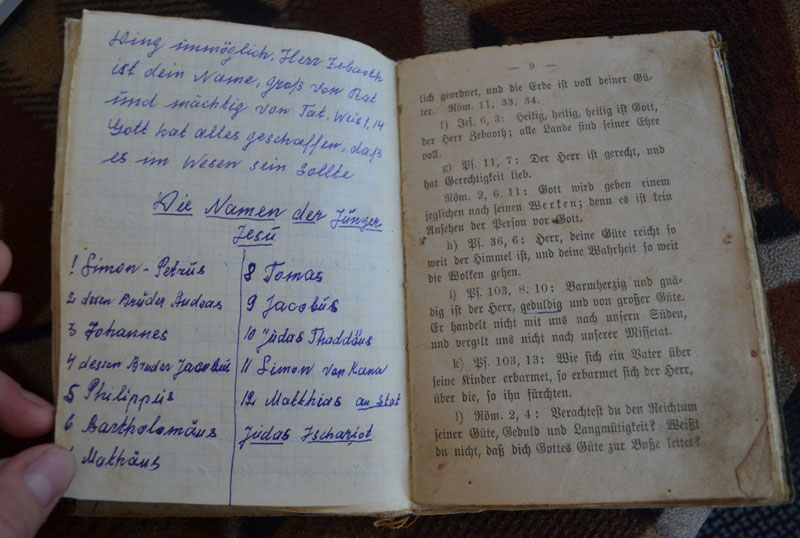 Ding unmöglich, Herr Zebaoth
ist dein Name, groß von Rat
und mächtig von Tat, Weis 1, 14
Gott hat alles geschaffen, daß
es im Wesen sein Sollte
Die Namen der Jünger
Jesu
1 Simon-Petrüs
2 desen Brüder Andeas
3 Johannes
4 dessen Bruder Jacobüs
5 Philippüs
6 Bartholomäus
Mathäus
8 Tomas
9 Jacobüs
10 Jüdas Thaddäus
11 Simon von Kana
12 Matthias an stat
Jüdas Ischariot
— 9 —
lich geordnet, und die Erde ist voll deiner Gü-
ter. Röm. 11, 33. 34.
f) Jes. 6, 3: Heilig, heilig, heilig ist Gott,
der Herr Zebaoth; alle Lande sind seiner Ehre
voll.
g) Ps. 11, 7: Der Herr ist gerecht, und
hat Gerechtigkeit lieb.
Röm. 2, 6. 11: Gott wird geben einem
jeglichen nach seinen Werken; denn es ist kein
Ansehen der Person vor Gott.
h) Ps. 36, 6: Herr, deine Güte reicht so
weit der Himmel ist, und deine Wahrheit so weit
die Wolken gehen.
i) Ps. 103, 8. 10: Barmherzig und gnä-
dig ist der Herr, geduldig und von großer Güte.
Er handelt nicht mit uns nach unsern Süden,
und vergilt uns nicht nach unserer Missetat.
k) Ps. 103, 13: Wie sich ein Vater über
seine Kinder erbarmet, so erbarmet sich der Herr,
über die, so ihn fürchten.
l) Röm. 2, 4: Verachtest du den Reichtum
seiner Güte, Geduld und Langmütigkeit? Weißt
du nicht, daß dich Gottes Güte zur Buße leitet?